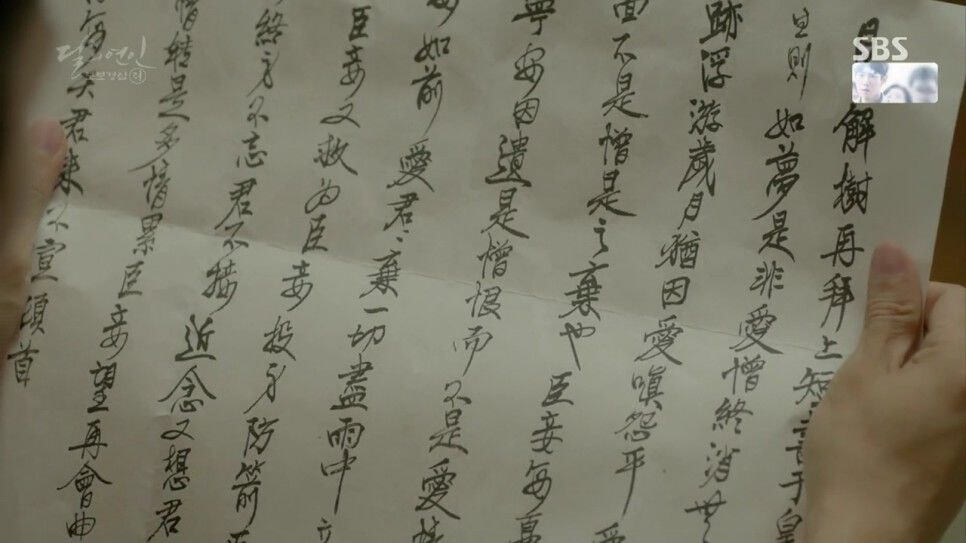 SBS
달의 연인
보보경심 려
解樹再拜上短于皇
旦則如夢是非愛憎終消世
跡浮游歲月猶因愛嗔怨平
面不是憎是之棄也臣妾每
寧安因遺是憎恨而不是愛
如前愛君々棄一切盡雨中立
臣妾又救为臣妾投身防箭
終身不忘君不接近念又想君
情轉是多情累臣妾望再會曲
每天君來不宣頓首